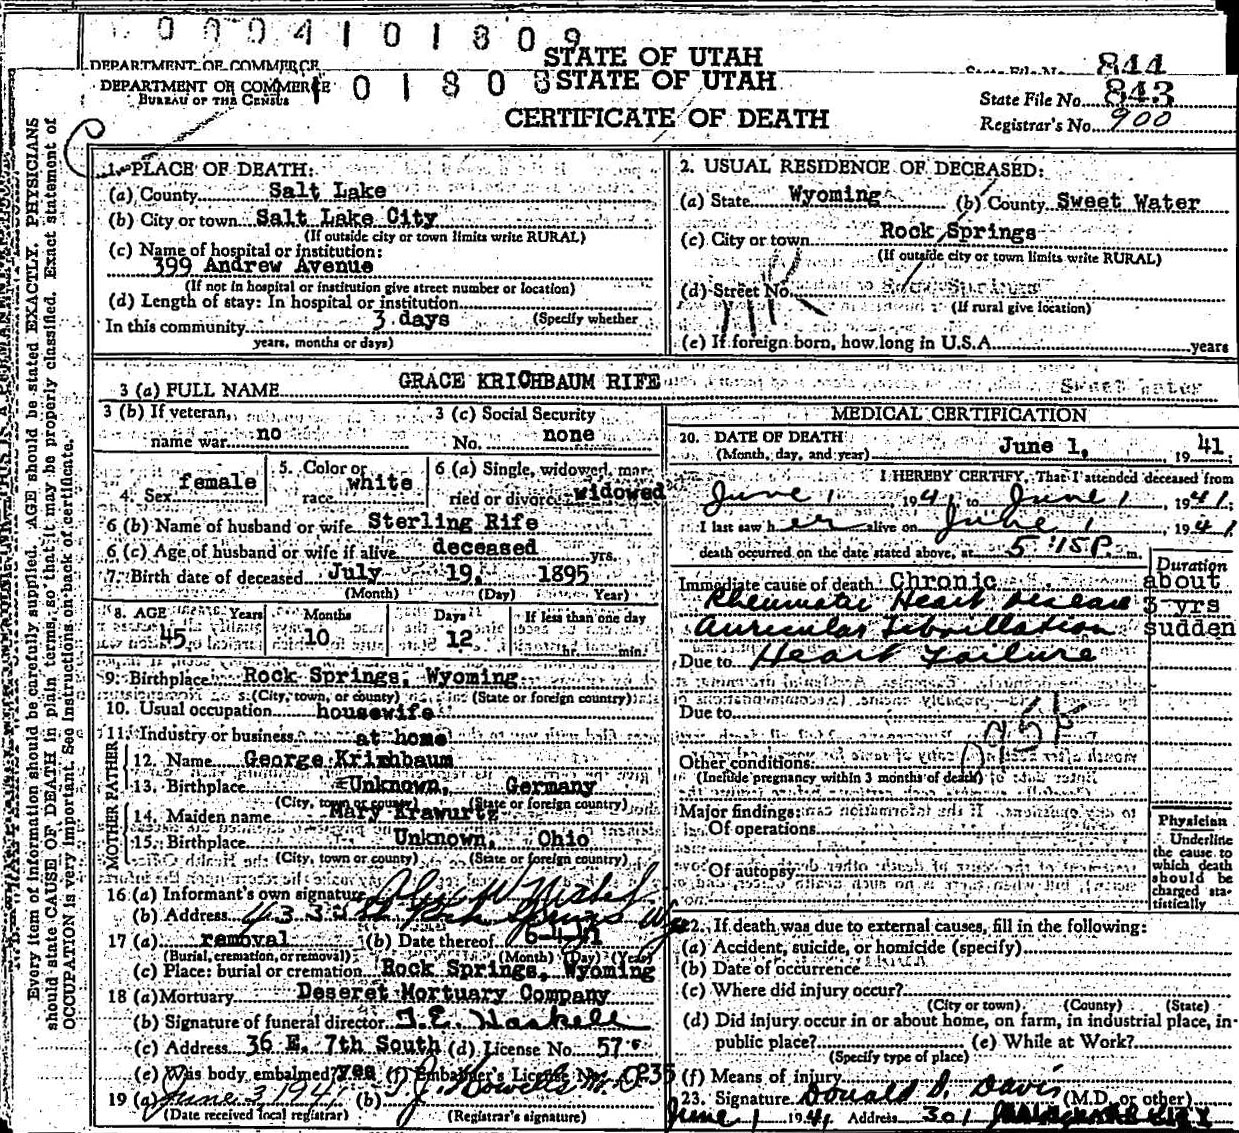 0004101809
STATE OF UTAH
DEPARTMENT OF COMMERCE
844
101808 STATE OF UTAH
DEPARTMENT OF COMMERCE
BUREAU OF THE CENSUS
CERTIFICATE OF DEATH
State File No. 843
Registrar's No. 900
Every item of information should be carefully supplied. AGE should be stated EXACTLY. PHYSICIANS
should state CAUSE OF DEATH in plain terms, so that it may be properly classified. Exact statement of
OCCUPATION is very important. See instructions on back of certificate.
1. PLACE OF DEATH:
(a) County Salt Lake
(b) City or town Salt Lake City
(If outside city or town limits write RURAL)
(c) Name of hospital or institution:
399 Andrew Avenue
(If not in hospital or institution give street number or location)
(d) Length of stay: In hospital or institution
In this community 3 days (Specify whether
years, months or days)
2. USUAL RESIDENCE OF DECEASED:
(a) State Wyoming (b) County Sweet Water
(c) City or town Rock Springs
(If outside city or town limits write RURAL)
(d) Street No.
(If rural give location)
(e) If foreign born, how long in U.S.A. years
3 (a) FULL NAME GRACE KRICHBAUM RIFE
3 (b) If veteran, name war no
3 (c) Social Security No. none
4. Sex female
5. Color or race white
6 (a) Single, widowed, married or divorced widowed
6 (b) Name of husband or wife Sterling Rife
6 (c) Age of husband or wife if alive deceased yrs.
7. Birth date of deceased July 19, 1895
(Month) (Day) (Year)
8. AGE Years Months Days If less than one day
45 10 12 hr. min.
9. Birthplace Rock Springs, Wyoming
(City, town, or county) (State or foreign country)
10. Usual occupation housewife
11. Industry or business at home
FATHER
12. Name George Krichbaum
13. Birthplace Unknown, Germany
(City, town or county) (State or foreign country)
MOTHER
14. Maiden name Mary Krawurtz
15. Birthplace Unknown, Ohio
(City, town or county) (State or foreign country)
16 (a) Informant's own signature
(b) Address Rock Springs Wyo
17 (a) removal (b) Date thereof 6-4-41
(Burial, cremation, or removal) (Month) (Day) (Year)
(c) Place: burial or cremation Rock Springs, Wyoming
18 (a) Mortuary Deseret Mortuary Company
(b) Signature of funeral director J. E. Haskell
(c) Address 36 E. 7th South (d) License No. 57
(e) Was body embalmed? yes (f) Embalmer's License No. 235
19 (a) June 3, 1941 (b)
(Date received local registrar) (Registrar's signature)
MEDICAL CERTIFICATION
20. DATE OF DEATH June 1, 1941
(Month, day, and year)
I HEREBY CERTIFY, That I attended deceased from
June 1, 1941, to June 1, 1941;
I last saw her alive on June 1, 1941
death occurred on the date stated above, at 5:15 P. m.
Duration
Immediate cause of death Chronic about
Rheumatic Heart Disease 3 yrs
Auricular Fibrillation sudden
Due to Heart Failure
Due to
Other conditions
(Include pregnancy within 3 months of death)
95b
Major findings:
Of operations
Of autopsy
Physician
Underline
the cause to
which death
should be
charged sta-
tistically
22. If death was due to external causes, fill in the following:
(a) Accident, suicide, or homicide (specify)
(b) Date of occurrence
(c) Where did injury occur?
(City or town) (County) (State)
(d) Did injury occur in or about home, on farm, in industrial place, in
public place? (e) While at Work?
(Specify type of place)
(f) Means of injury
23. Signature Donald D. Davis (M.D. or other)
June 1 1941 Address 301